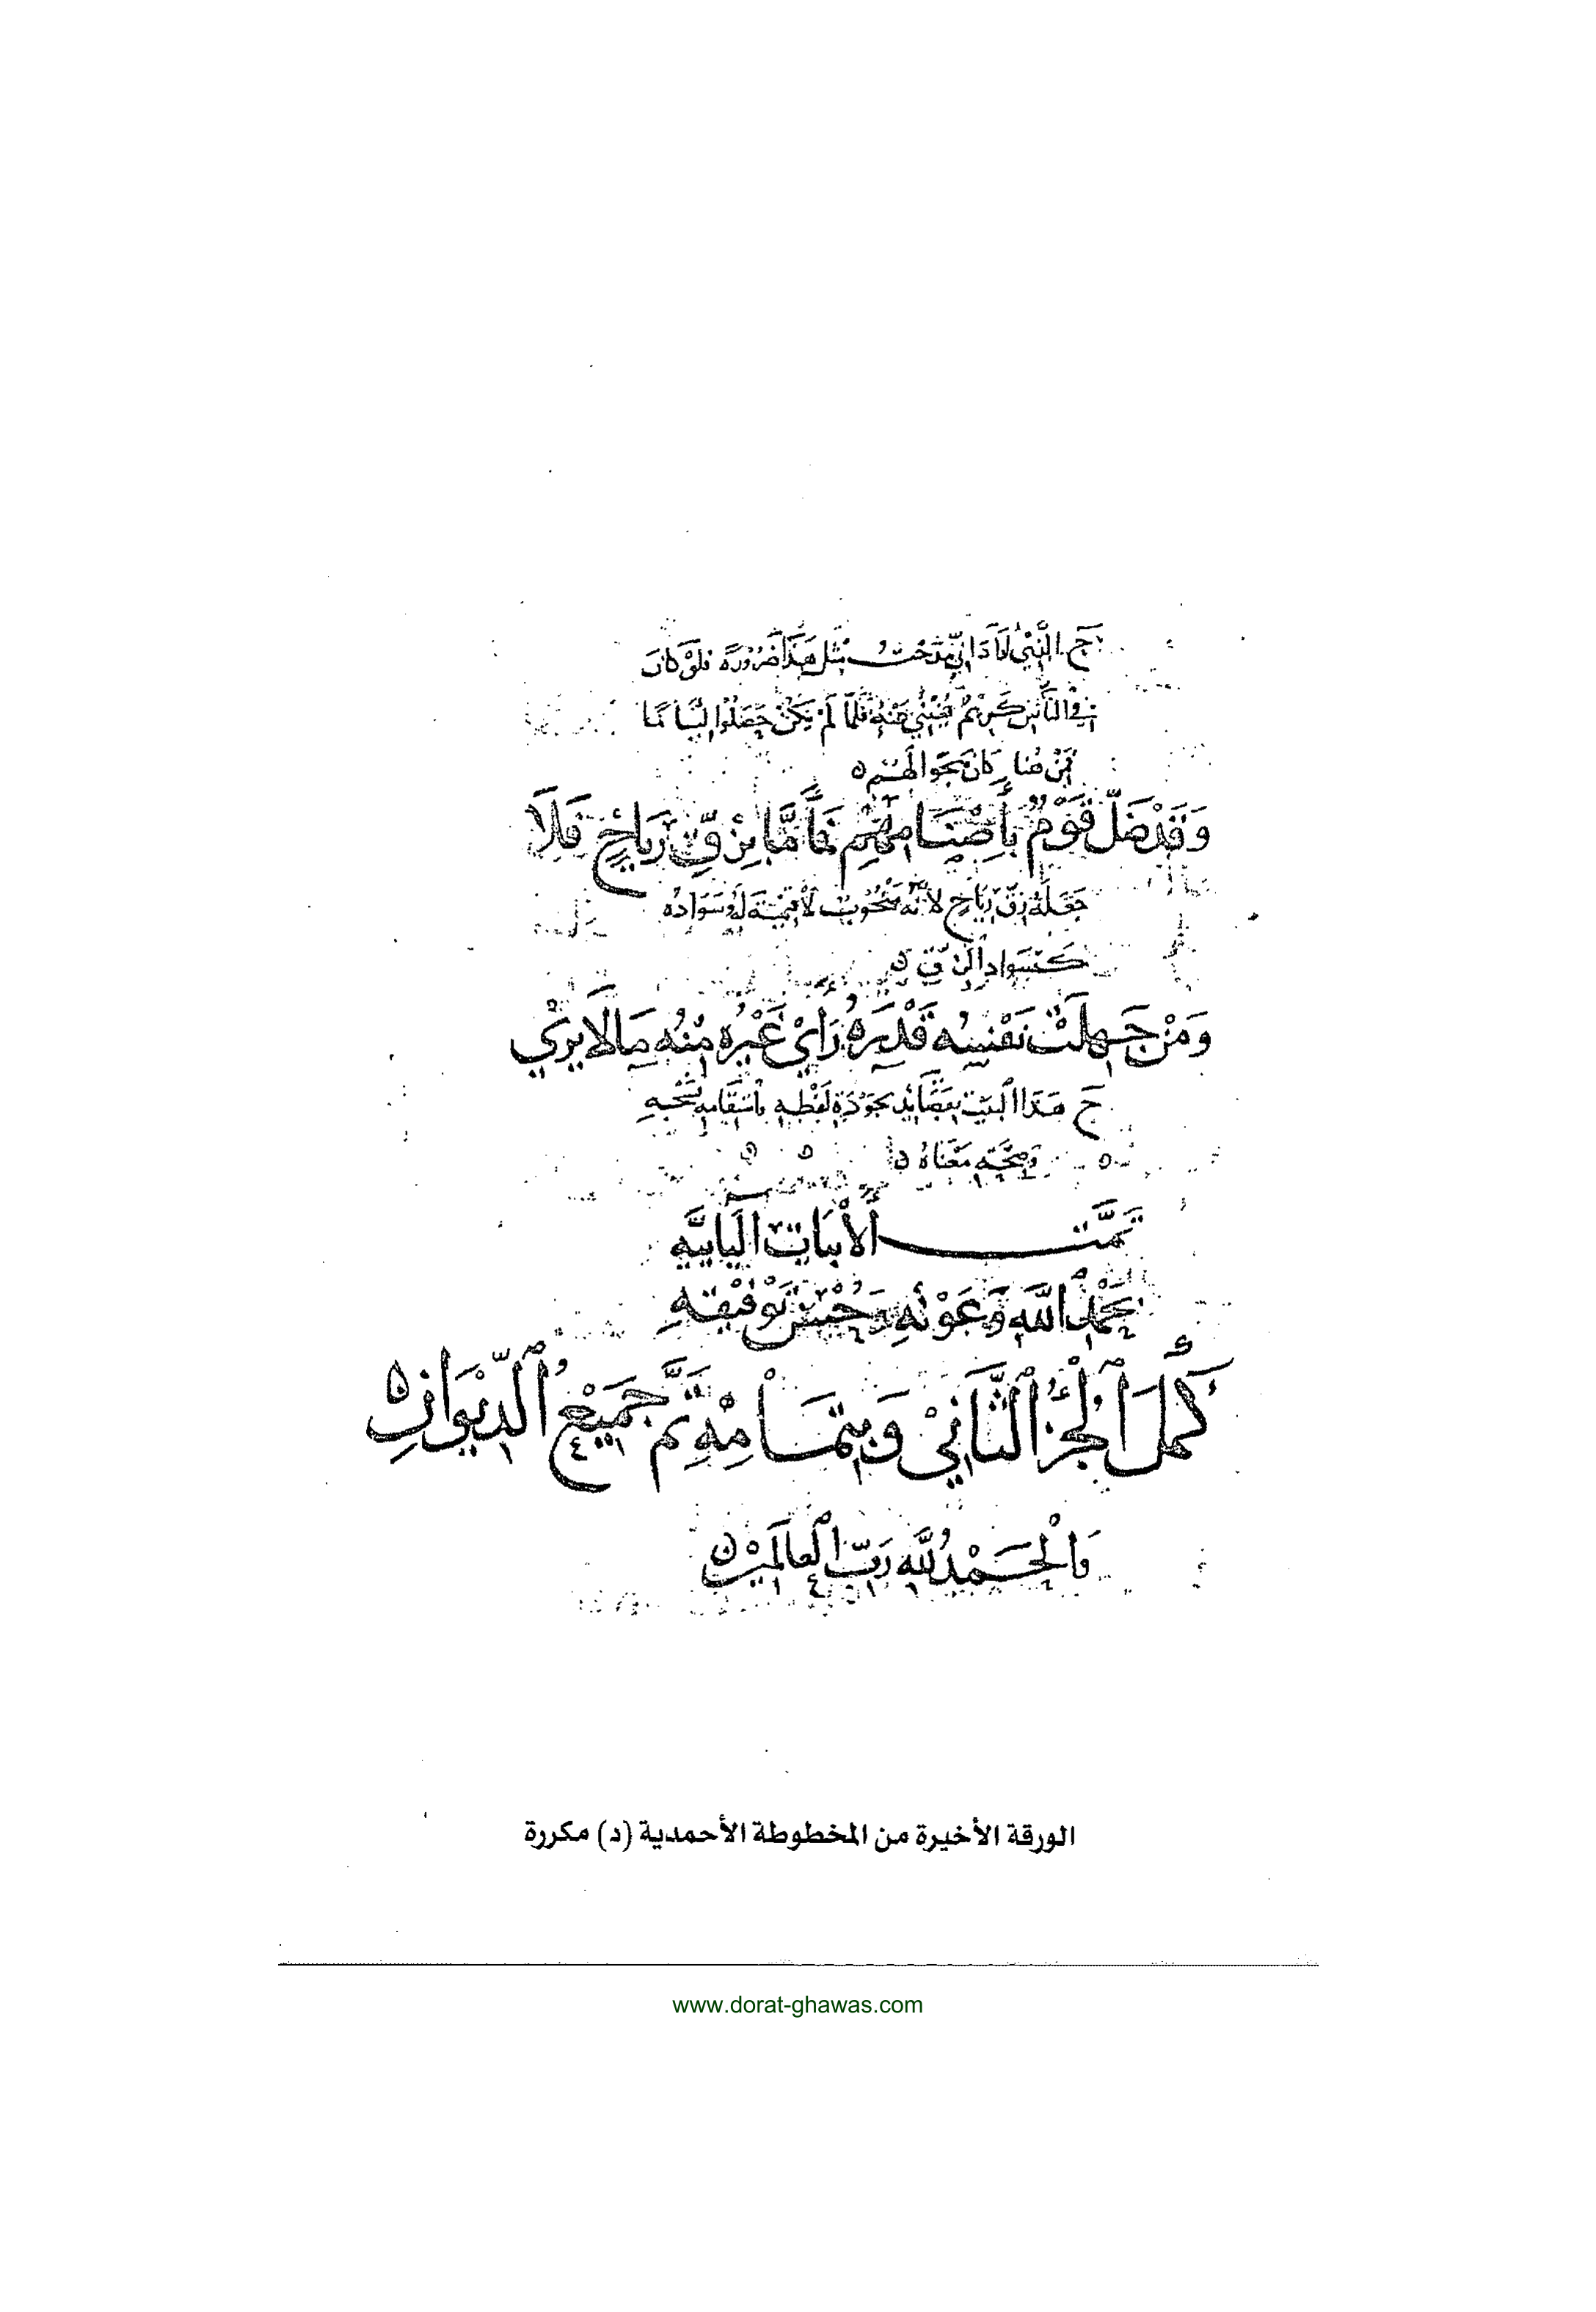 ح البيتي أفاد أني مدحت مثل هذا ضرورة فلو كان
في الناس كريم يغنيني عنه فلما لم يكن جعلوا
فمن هنا كان هجوا لهم ه
وَقَدْ ضَلَّ قَوْمٌ بِأَصْنَامِهِمْ فَأَمَّا بِزِقِّ رِيَاحٍ فَلَا
جَعَلَهُ زِقَّ رِيَاحٍ لأنّه مَنْخُوبٌ لا قيمَةَ لَهُ وَسَوَادُه
كسواد الزق ه
وَمَنْ جَهِلَتْ نَفْسُه قَدْرَهُ رَأَى غَيْرُه مِنْهُ مَا لَا يَرَى
ح هَذَا البَيْت بقصَائد بجَوْدَةِ لَفْظِهِ واستقامةِ نسجِهِ
وصحَّةِ مَعْنَاهُ ه
تمَّت الأَبيَات اليَائيَّه
بحَمْدِ اللَّهِ وَعَوْنِهِ وَحُسْنِ تَوْفِيْقِهِ
كَمُلَ ٱلْجُزْءُ ٱلثَّانِيْ وَبِتَمَامِهِ تَمَّ جَمِيْعُ ٱلدِّيْوَانِ ه
وَالْحَمْدُ لِلَّهِ رَبِّ الْعَالَمِيْنَ
الورقة الأخيرة من المخطوطة الأحمدية (د) مكررة
www.dorat-ghawas.com